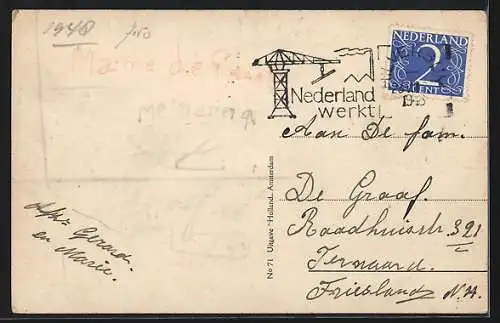 1948
7.50
NEDERLAND
2
CENT
Nederland
werkt!
1948
Aan De fam.
De Graaf.
Raadhuisstr 321
Ternaard.
Friesland N.H.
Afz. Gerard.
en Marie.
No 71 Uitgave "Holland, Amsterdam